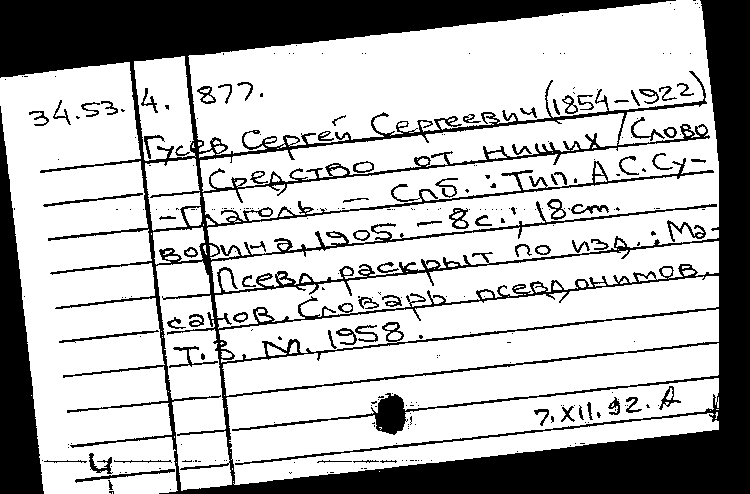 34.53.4.877.
Гусев, Сергей Сергеевич (1854-1922)
Средство от нищих / Слово
-Глаголь. - Спб. : Тип. А.С.Су-
ворина, 1905. - 8с.; 18см.
Псевд. раскрыт по изд.: Ма-
санов. Словарь псевдонимов.
Т. 3. М., 1958.
7.XII.92.
Ч